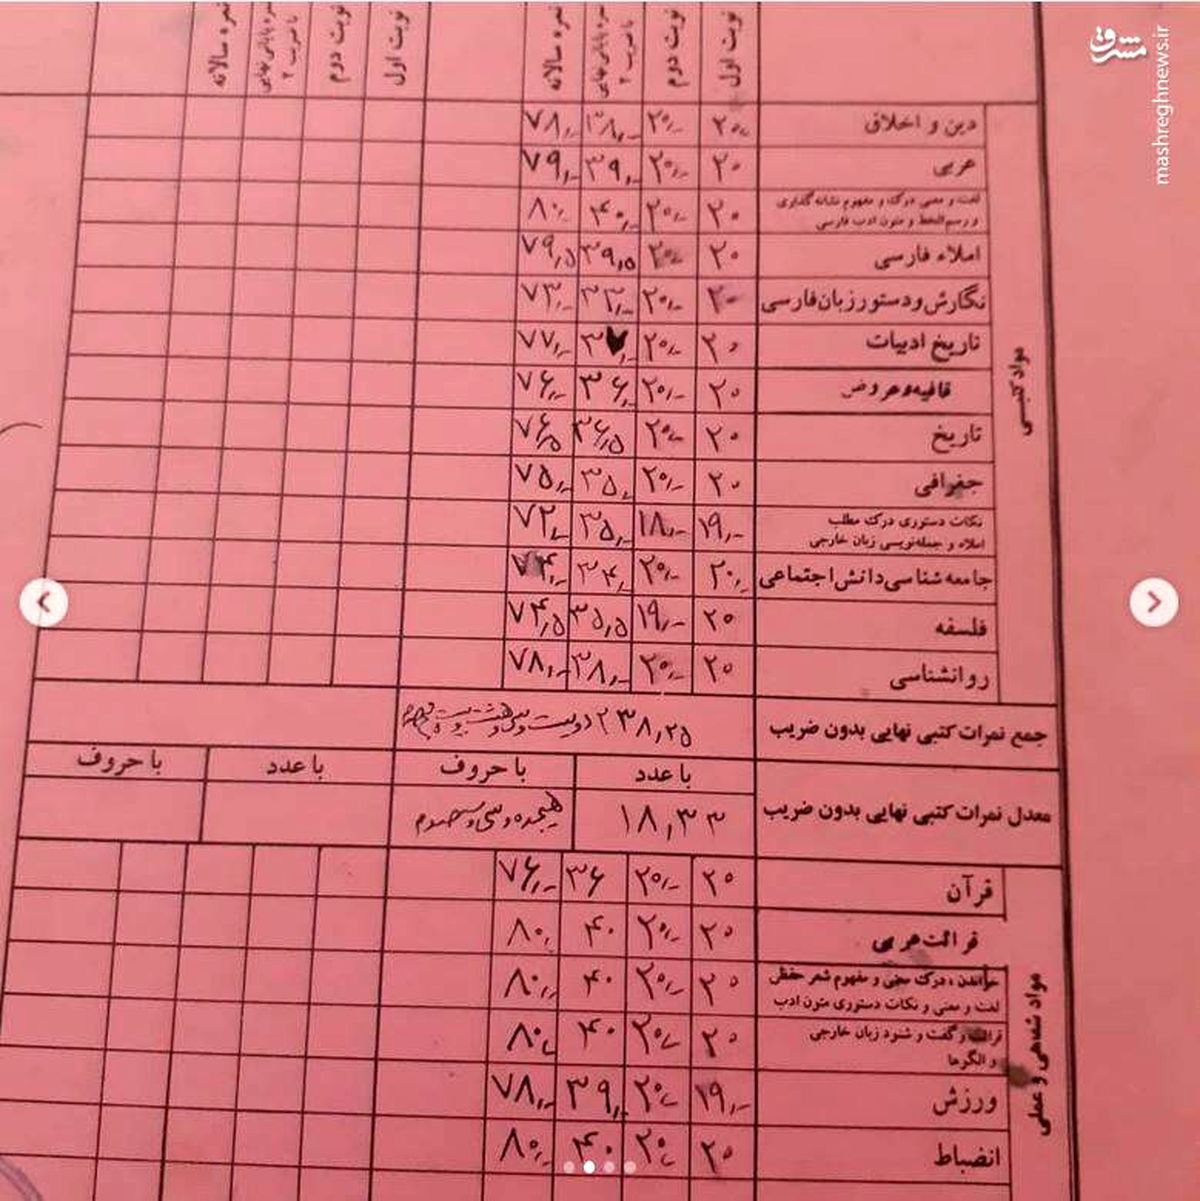 مشرق
mashreghnews.ir
نوبت اول
نوبت دوم
نمره پایانی نهایی با ضریب ۲
نمره سالانه
نوبت اول
نوبت دوم
نمره پایانی نهایی با ضریب ۲
نمره سالانه
مواد کتبی
دین و اخلاق ۲۰٫- ۲۰٫- ۳۸٫- ۷۸٫-
عربی ۲۰ ۲۰٫- ۳۹٫- ۷۹٫-
لغت و معنی درک و مفهوم نشانه گذاری
و رسم‌الخط و متون ادب فارسی ۲۰ ۲۰٫- ۴۰٫- ۸۰٫-
املاء فارسی ۲۰ ۲۰٫- ۳۹٫۵ ۷۹٫۵
نگارش و دستور زبان فارسی ۲۰ ۲۰٫- ۳۳٫- ۷۳٫-
تاریخ ادبیات ۲۰ ۲۰٫- ۳۷٫- ۷۷٫-
قافیه و عروض ۲۰ ۲۰٫- ۳۶٫- ۷۶٫-
تاریخ ۲۰ ۲۰٫- ۳۶٫۵ ۷۶٫۵
جغرافی ۲۰ ۲۰٫- ۳۵٫- ۷۵٫-
نکات دستوری درک مطلب
املاء و جمله‌نویسی زبان خارجی ۱۹٫- ۱۸٫- ۳۵٫- ۷۲٫-
جامعه شناسی دانش اجتماعی ۲۰٫- ۲۰٫- ۳۴٫- ۷۴٫-
فلسفه ۲۰ ۱۹٫- ۳۵٫۵ ۷۴٫۵
روانشناسی ۲۰ ۲۰٫- ۳۸٫- ۷۸٫-
جمع نمرات کتبی نهایی بدون ضریب ۲۳۸٫۲۵ دویست و سی و هشت و بیست و پنج صدم
با عدد با حروف با عدد با حروف
معدل نمرات کتبی نهایی بدون ضریب ۱۸٫۳۳ هیجده و سی و سه صدم
مواد شفاهی و عملی
قرآن ۲۰ ۲۰٫- ۳۶ ۷۶٫-
قرائت عربی ۲۰ ۲۰٫- ۴۰ ۸۰٫-
خواندن، درک معنی و مفهوم شعر حفظی
لغت و معنی و نکات دستوری متون ادب ۲۰ ۲۰٫- ۴۰ ۸۰٫-
قرائت و گفت و شنود زبان خارجی
و الگوها ۲۰ ۲۰٫- ۴۰ ۸۰٫-
ورزش ۱۹٫- ۲۰٫- ۳۹٫- ۷۸٫-
انضباط ۲۰ ۲۰٫- ۴۰ ۸۰٫-